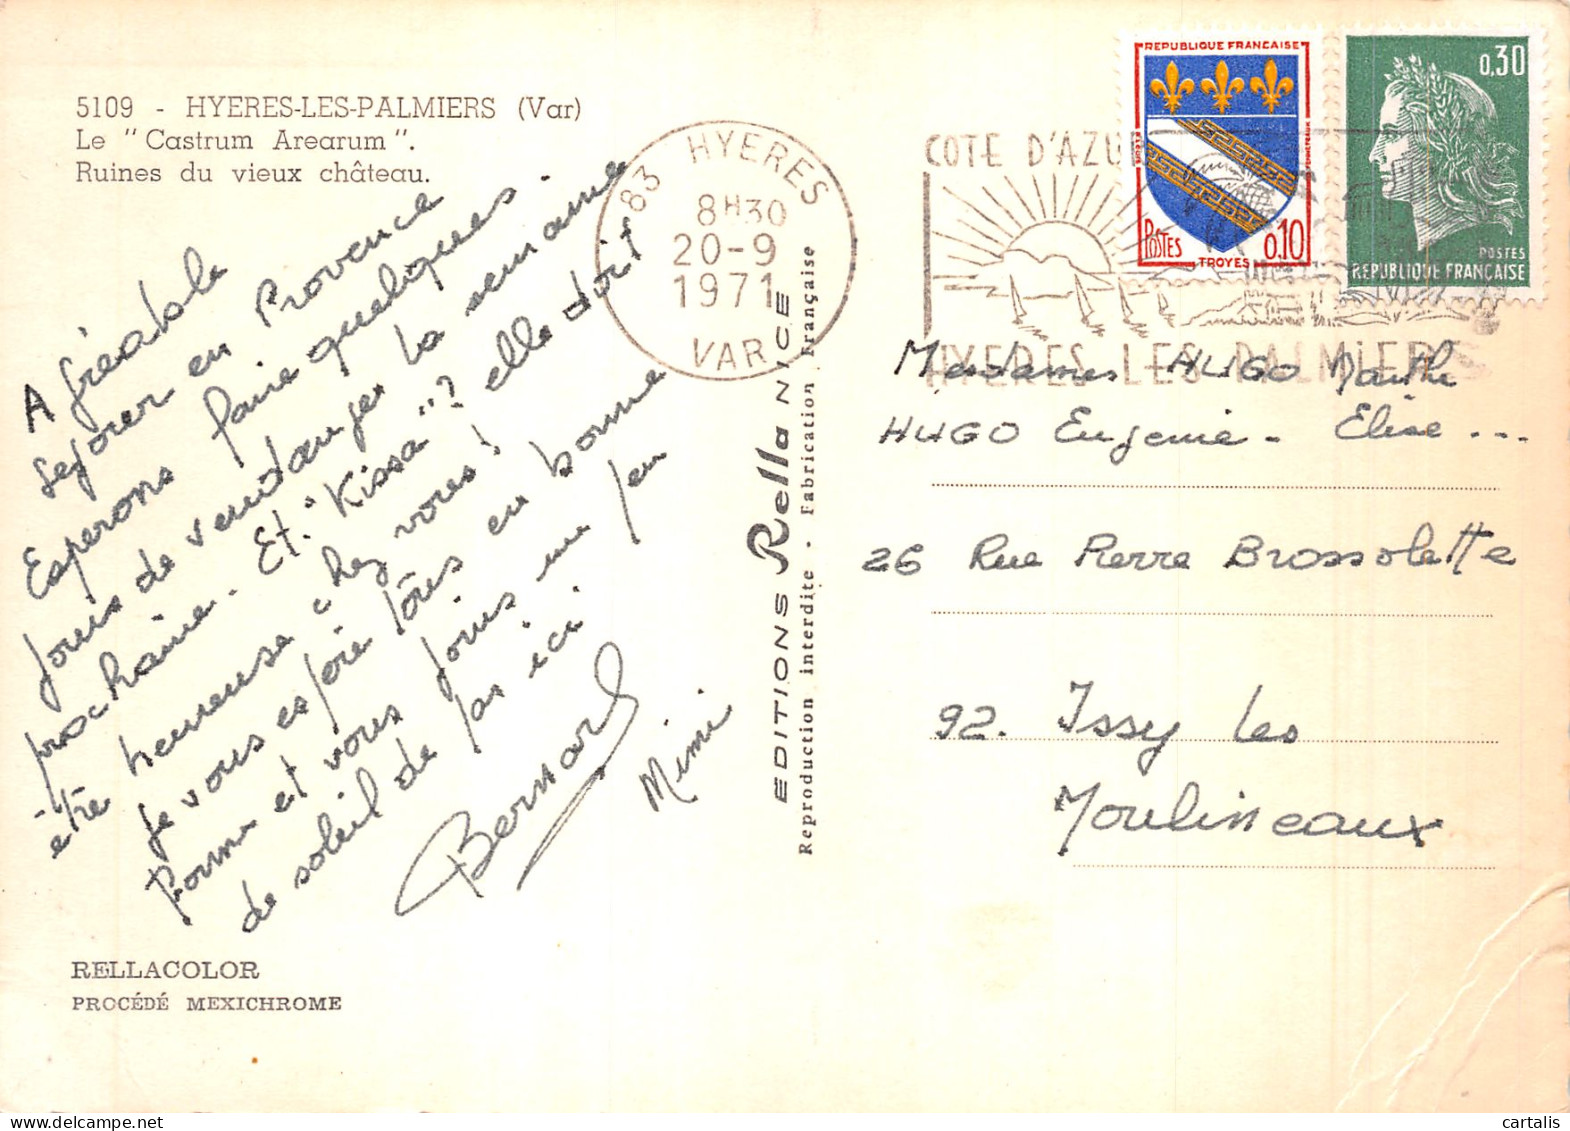 5109 - HYERES-LES-PALMIERS (Var)
Le "Castrum Arearum".
Ruines du vieux château.
Agréable
séjour en Provence
Esperons faire quelques
jours de vendanges la semaine
prochaine. Et "Kissa"? elle doit
être heureuse chez vous!
Je vous espère tous en bonne
forme et vous joins un peu
de soleil de par ici
Bernard
Mimi
RELLACOLOR
PROCÉDÉ MEXICHROME
EDITIONS Rella NICE
Reproduction interdite - Fabrication Française
83 HYERES
8H30
20-9
1971
VAR
COTE D'AZUR
HYERES LES PALMIERS
REPUBLIQUE FRANCAISE
POSTES
0,10
TROYES
0,30
POSTES
REPUBLIQUE FRANÇAISE
Mesdames HUGO Marthe
HUGO Eugenie - Elise ...
26 Rue Pierre Brossolette
92. Issy les
Moulineaux
cartalis.com